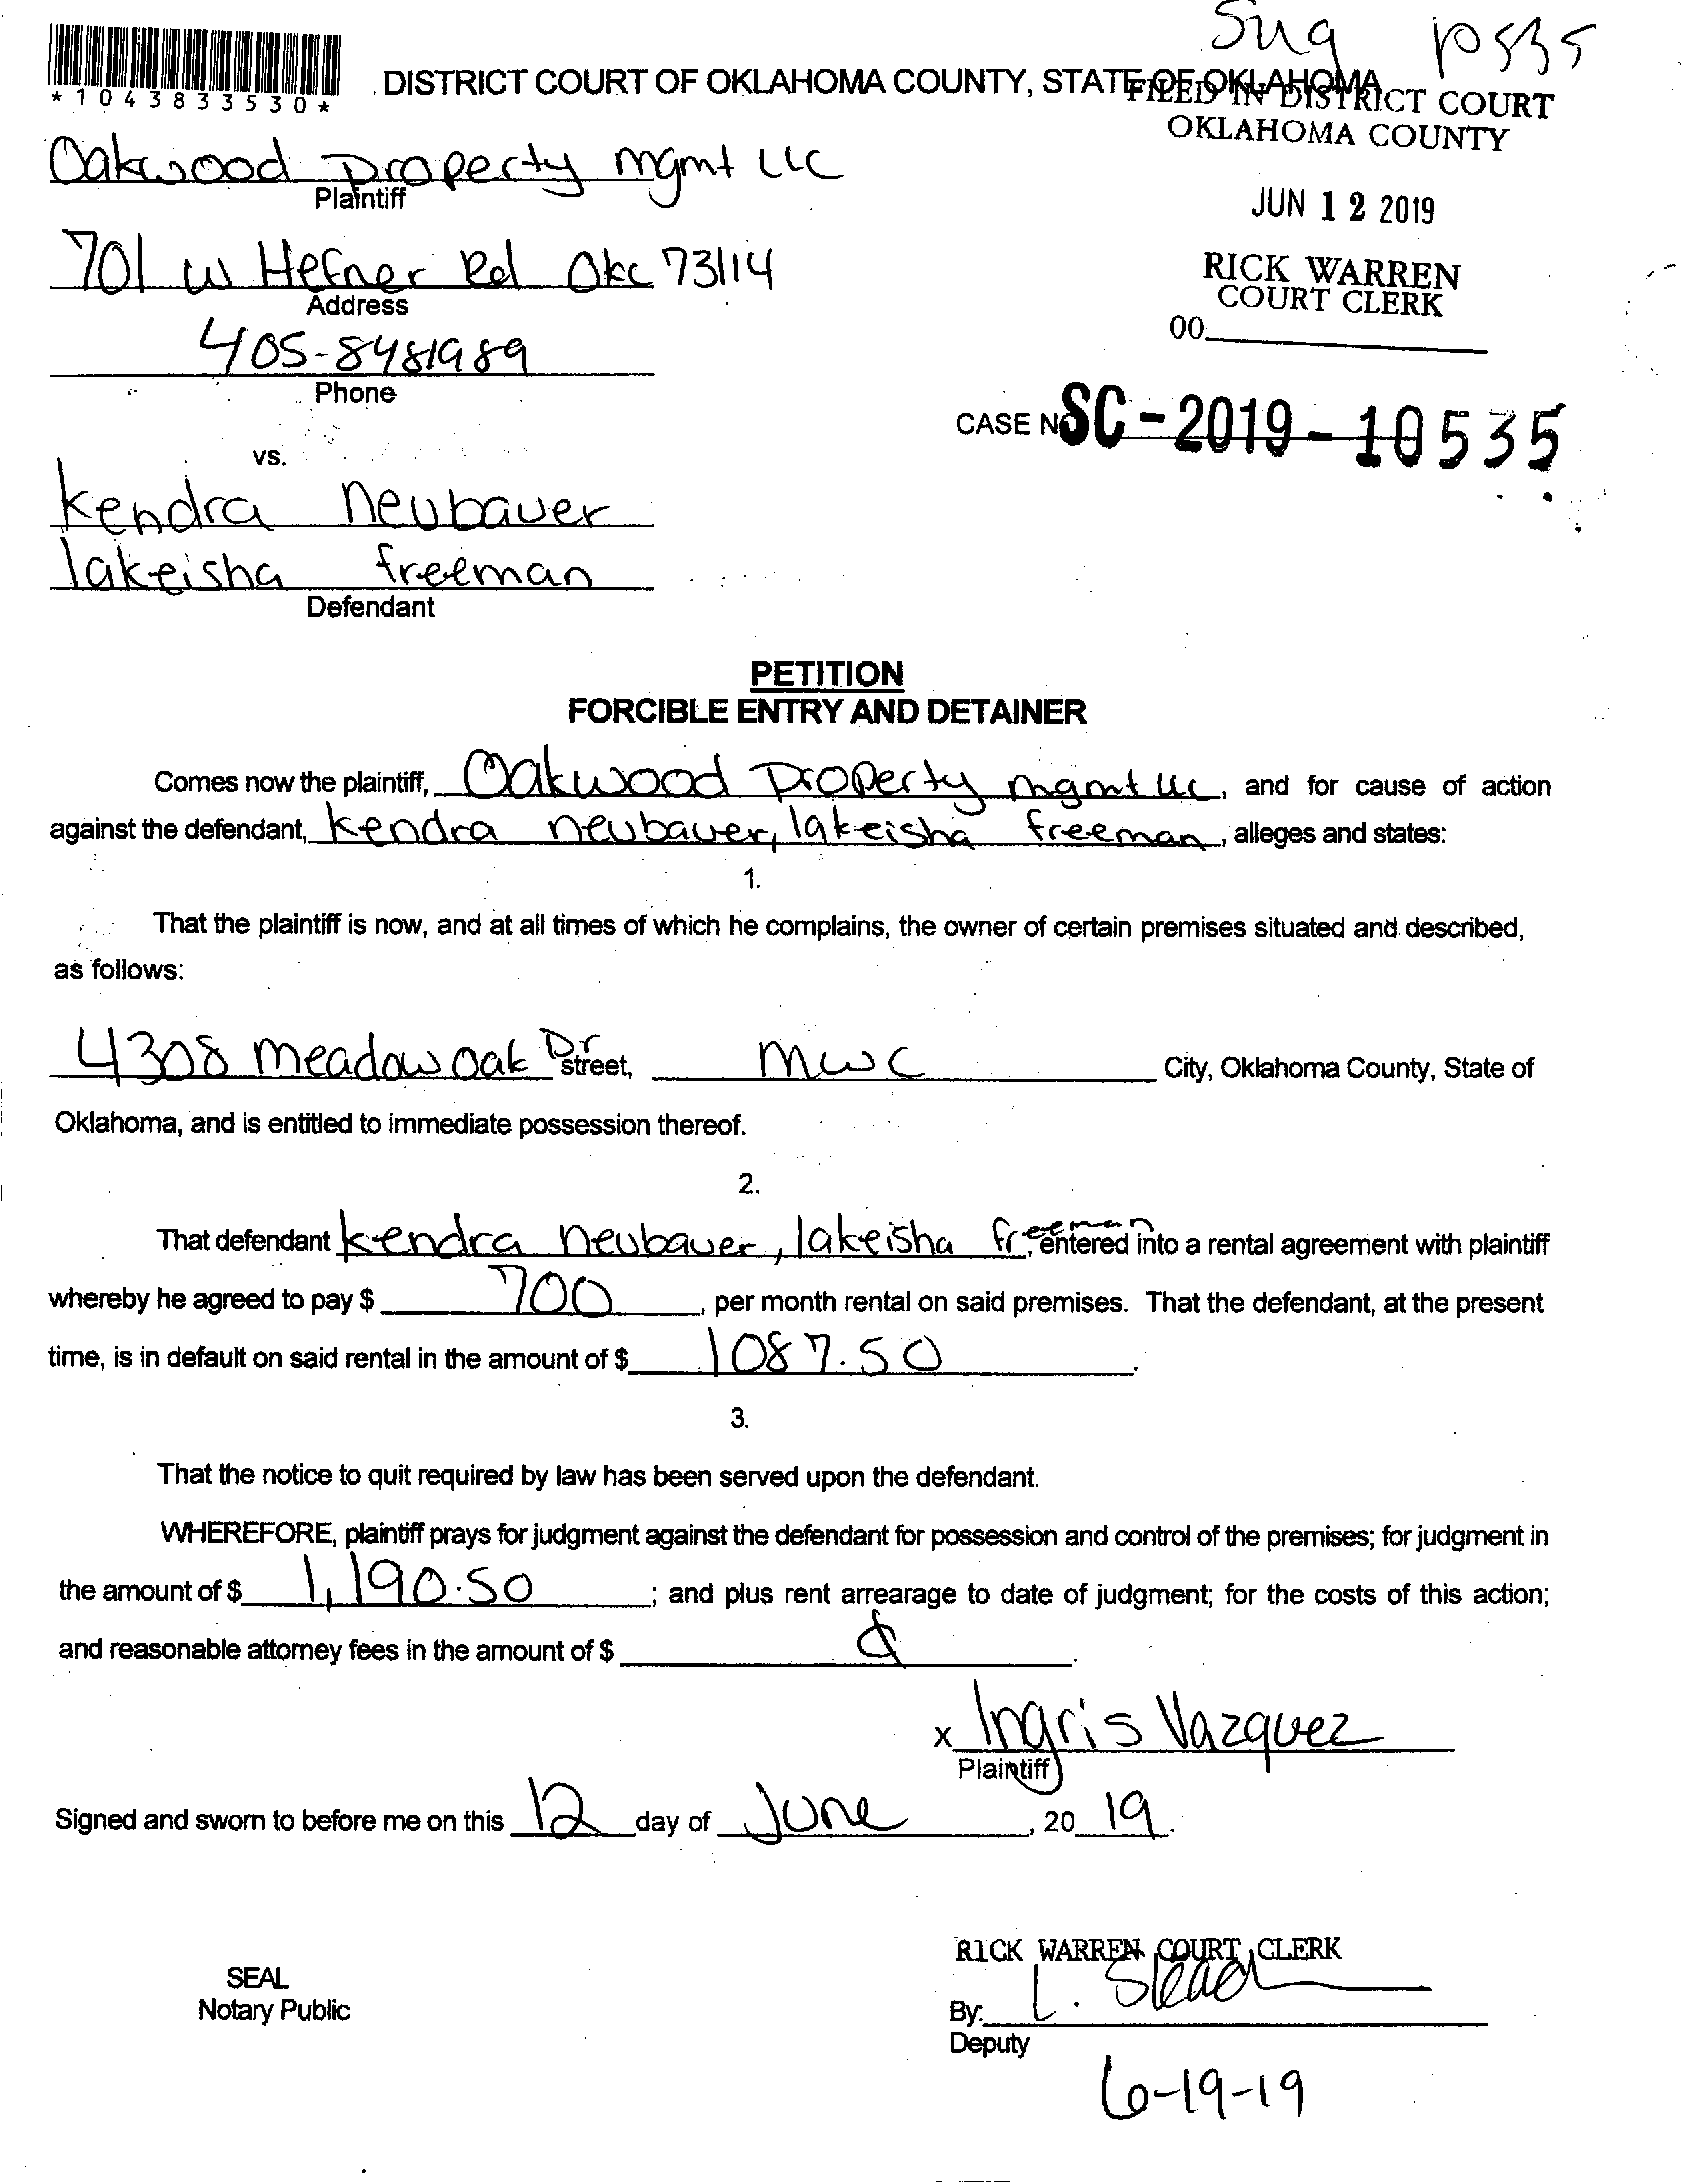 *1043833530*
DISTRICT COURT OF OKLAHOMA COUNTY, STATE OF OKLAHOMA
FILED IN DISTRICT COURT
OKLAHOMA COUNTY
JUN 12 2019
RICK WARREN
COURT CLERK
00
Oakwood Property mgmt LLC
Plaintiff
701 W Hefner Rd Okc 73114
Address
405-8481989
Phone
CASE NO SC-2019-10535
vs.
Kendra Neubauer
lakeisha freeman
Defendant
PETITION
FORCIBLE ENTRY AND DETAINER
Comes now the plaintiff, Oakwood Property mgmt LLC, and for cause of action
against the defendant, Kendra neubauer, lakeisha freeman, alleges and states:
1.
That the plaintiff is now, and at all times of which he complains, the owner of certain premises situated and described,
as follows:
4308 meadow oak Dr street, mwc City, Oklahoma County, State of
Oklahoma, and is entitled to immediate possession thereof.
2.
That defendant kendra neubauer, lakeisha freeman, entered into a rental agreement with plaintiff
whereby he agreed to pay $ 700, per month rental on said premises. That the defendant, at the present
time, is in default on said rental in the amount of $ 1087.50.
3.
That the notice to quit required by law has been served upon the defendant.
WHEREFORE, plaintiff prays for judgment against the defendant for possession and control of the premises; for judgment in
the amount of $ 1,190.50; and plus rent arrearage to date of judgment; for the costs of this action;
and reasonable attorney fees in the amount of $
x Ingris Vazquez
Plaintiff
Signed and sworn to before me on this 12 day of June, 20 19.
RICK WARREN COURT CLERK
SEAL
Notary Public
By:
Deputy
6-19-19